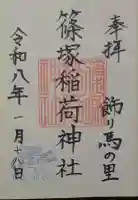 奉拝
飾り馬の里
篠塚稲荷神社
令和八年一月十八日